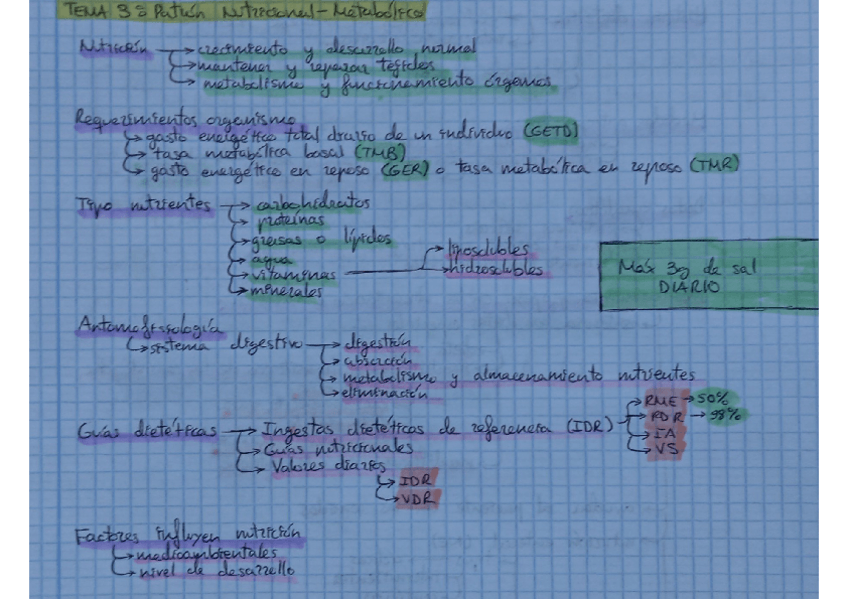 TEMA 3: Patrón Nutricional - Metabólico
Nutrición → crecimiento y desarrollo normal
→ mantener y reparar tejidos
→ metabolismo y funcionamiento órganos
Requerimientos organismo
↳ gasto energético total diario de un individuo (GETD)
↳ tasa metabólica basal (TMB)
↳ gasto energético en reposo (GER) o tasa metabólica en reposo (TMR)
Tipo nutrientes → carbohidratos
→ proteínas
→ grasas o lípidos
→ agua
→ vitaminas → liposolubles
→ hidrosolubles
→ minerales
Máx 3g de sal
DIARIO
Antomofisiología
↳ sistema digestivo → digestión
→ absorción
→ metabolismo y almacenamiento nutrientes
→ eliminación
Guías dietéticas → Ingestas dietéticas de referencia (IDR) → RME → 50%
→ RDR → 98%
→ IA
→ VS
→ Guías nutricionales
→ Valores diarios
↳ IDR
↳ VDR
Factores influyen nutrición
↳ medioambientales
↳ nivel de desarrollo